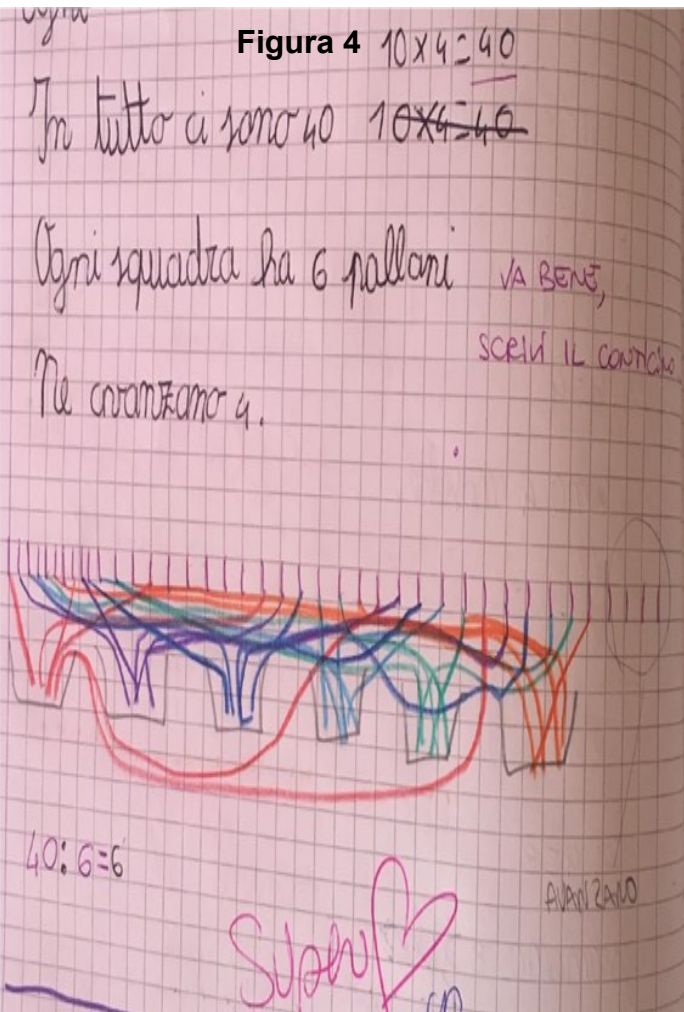 Figura 4 10x4=40
In tutto ci sono 40 10x4=40
Ogni squadra ha 6 palloni VA BENE,
SCRIVI IL CONTICINO
Ne avanzano 4.
40:6=6
AVANZANO
Super